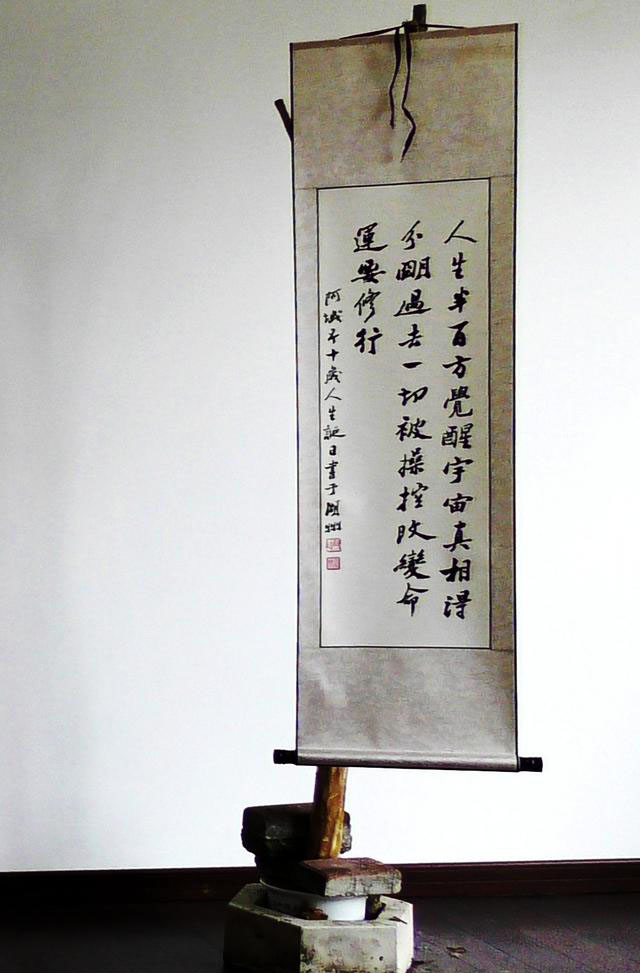 人生半百方覺醒宇宙真相得
分明過去一切被操控改變命
運要修行
阿城五十歲人生誕日書于湖州